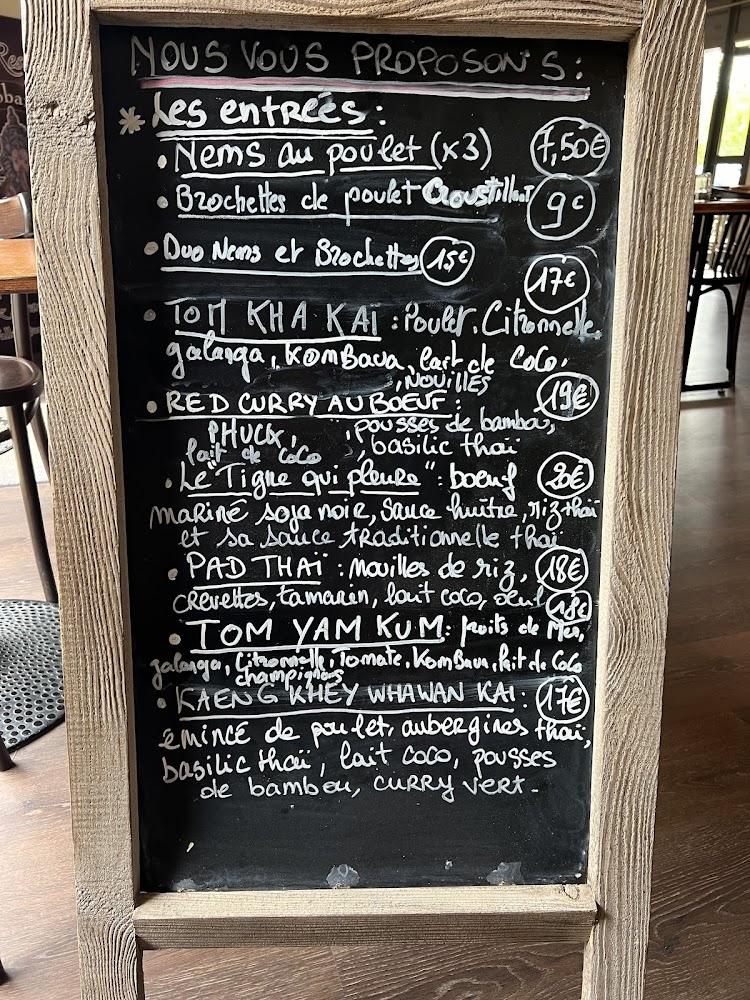 NOUS VOUS PROPOSON'S :
* Les entrées :
• Nems au poulet (x3) 7,50€
• Brochettes de poulet Croustillant 9€
• Duo Nems et Brochettes 15€
17€
• TOM KHA KAÏ : Poulet, Citronnelle,
galanga, KomBava, lait de Coco,
, NOUILLES
• RED CURRY AU BOEUF : 19€
PHUCK, , pousses de bambou,
lait de CoCo , basilic thaï
• Le "Tigre qui pleure" : boeuf 20€
mariné soja noir, sauce huître, riz thaï
et sa sauce traditionnelle thaï
• PAD THAÏ : nouilles de riz, 18€
crevettes, tamarin, lait coco, oeuf 18€
• TOM YAM KUM : fruits de Mer,
galanga, Citronnelle, Tomate, KomBava, lait de Coco
champignons
• KAENG KHEY WHAWAN KAI : 17€
émincé de poulet, aubergines thaï,
basilic thaï, lait coco, pousses
de bambou, curry vert.